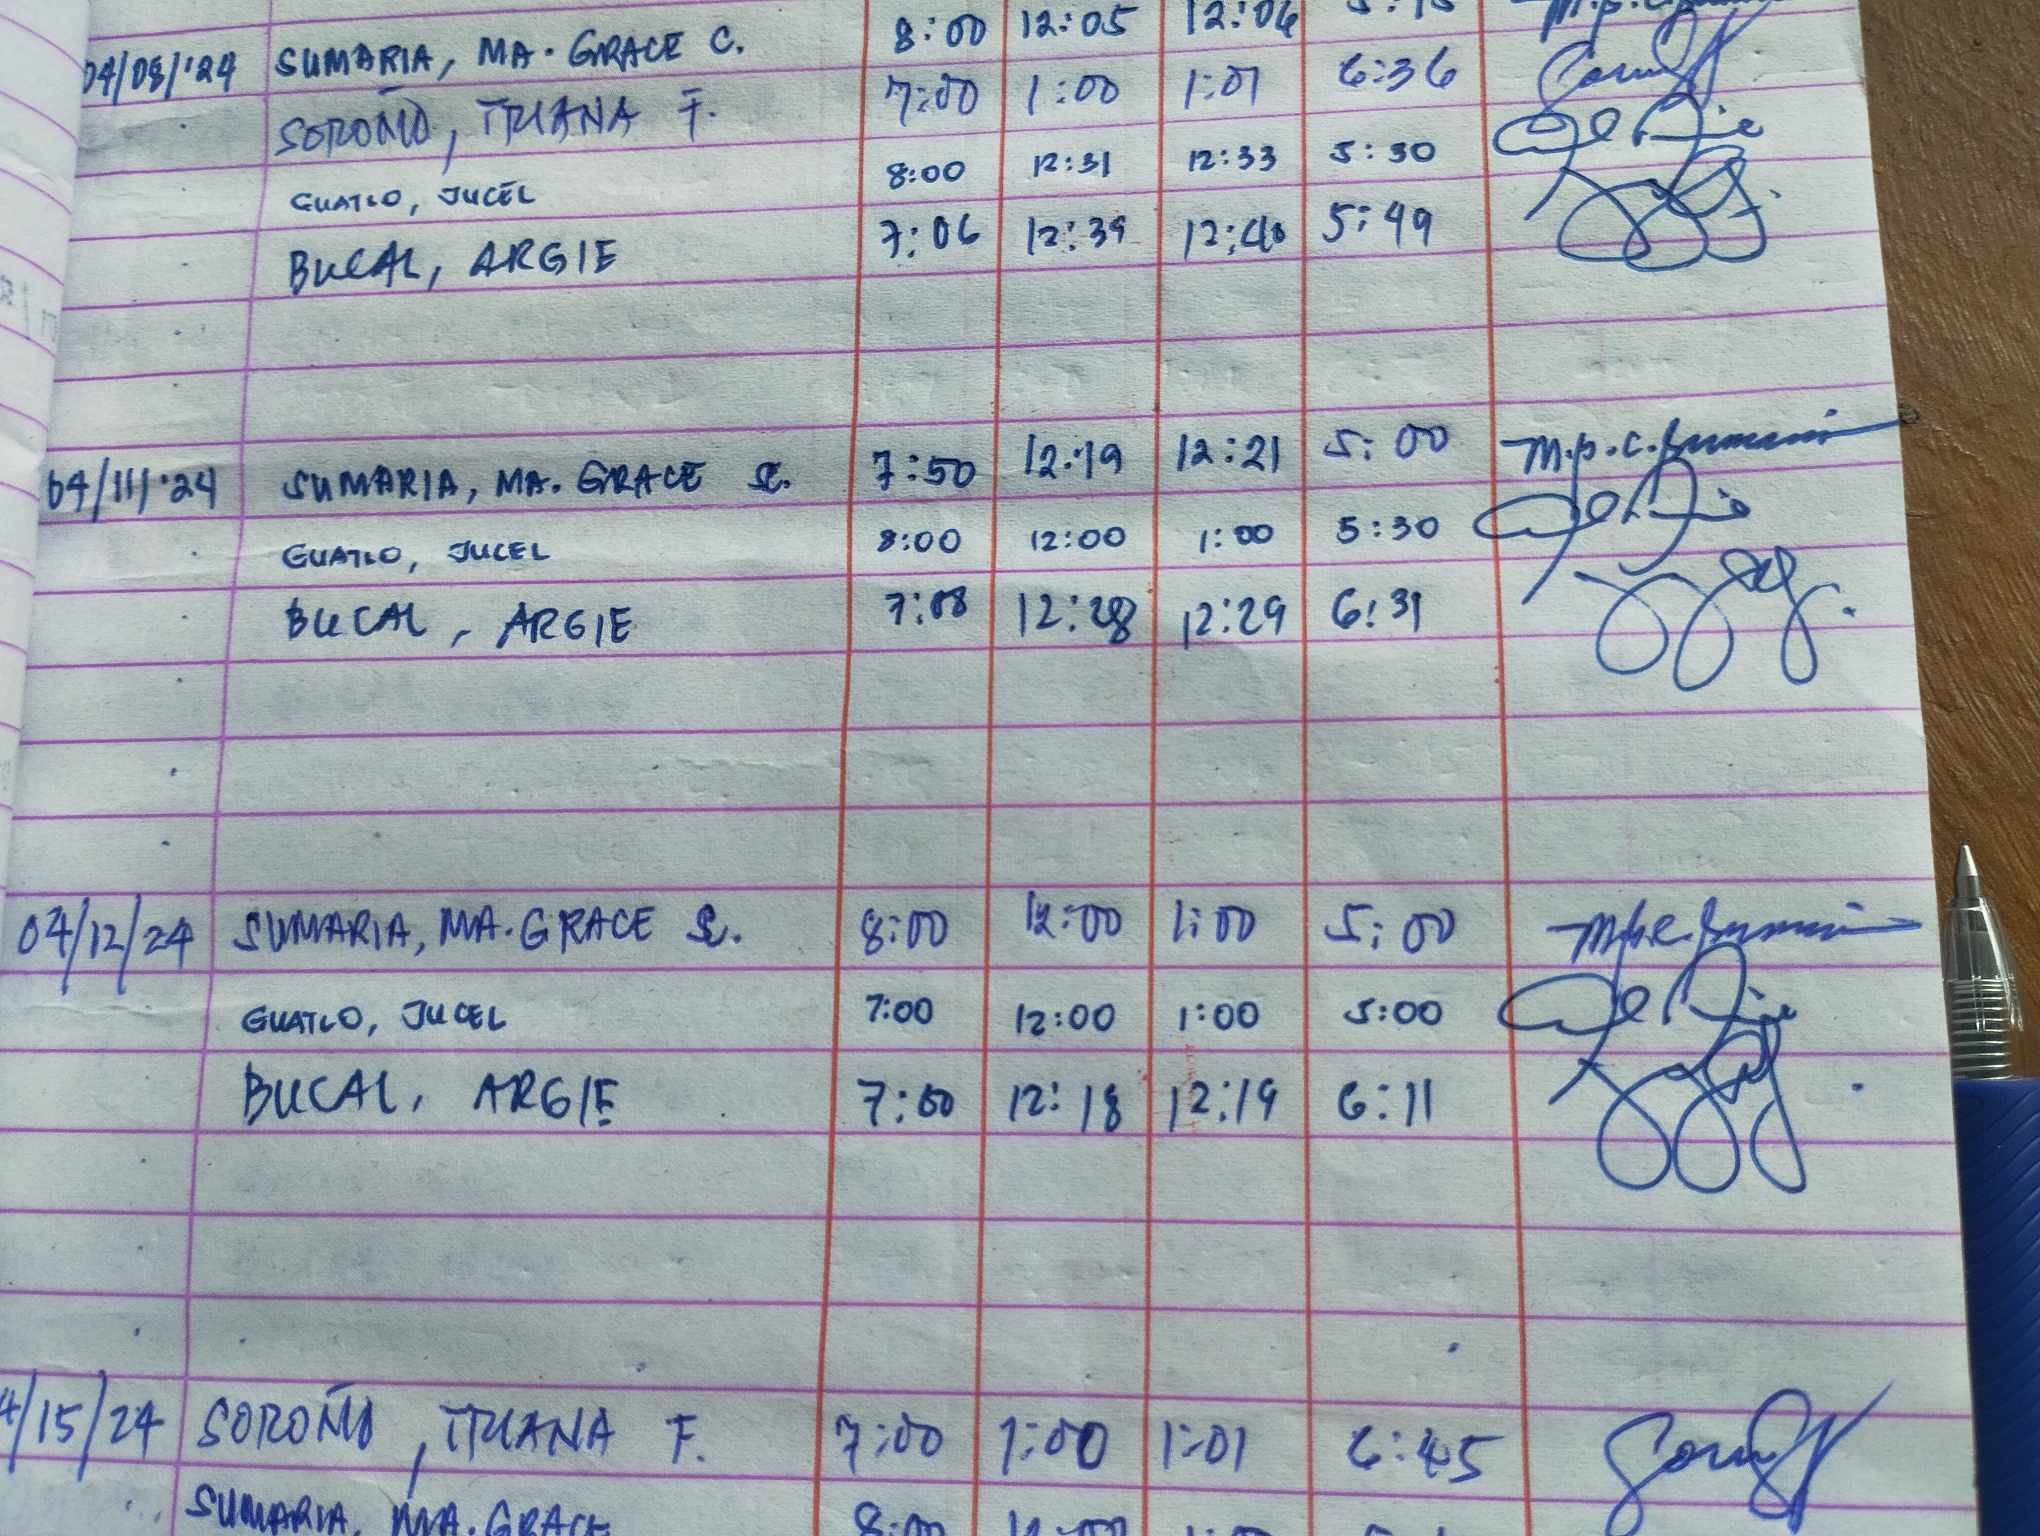 04/08/'24 SUMARIA, MA. GRACE C. 8:00 12:05 12:06
SOROÑO, TRIANA F. 7:00 1:00 1:01 6:36
GUATLO, JUCEL 8:00 12:31 12:33 5:30
BUCAL, ARGIE 7:06 12:39 12:40 5:49
04/11/'24 SUMARIA, MA. GRACE C. 7:50 12:19 12:21 5:00
GUATLO, JUCEL 8:00 12:00 1:00 5:30
BUCAL, ARGIE 7:08 12:28 12:29 6:31
04/12/24 SUMARIA, MA. GRACE C. 8:00 12:00 1:00 5:00
GUATLO, JUCEL 7:00 12:00 1:00 5:00
BUCAL, ARGIE 7:00 12:18 12:19 6:11
4/15/24 SOROÑO, TRIANA F. 7:00 1:00 1:01 6:45
SUMARIA, MA. GRACE 8:00